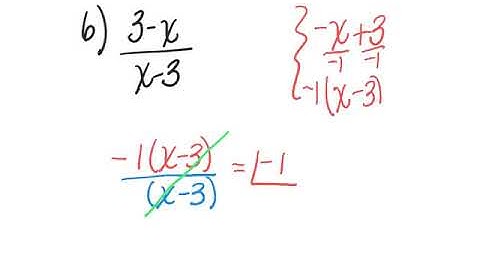 b) 3-x / x-3
-x + 3
-1 -1
-1(x-3)
-1(x-3) / (x-3) = -1